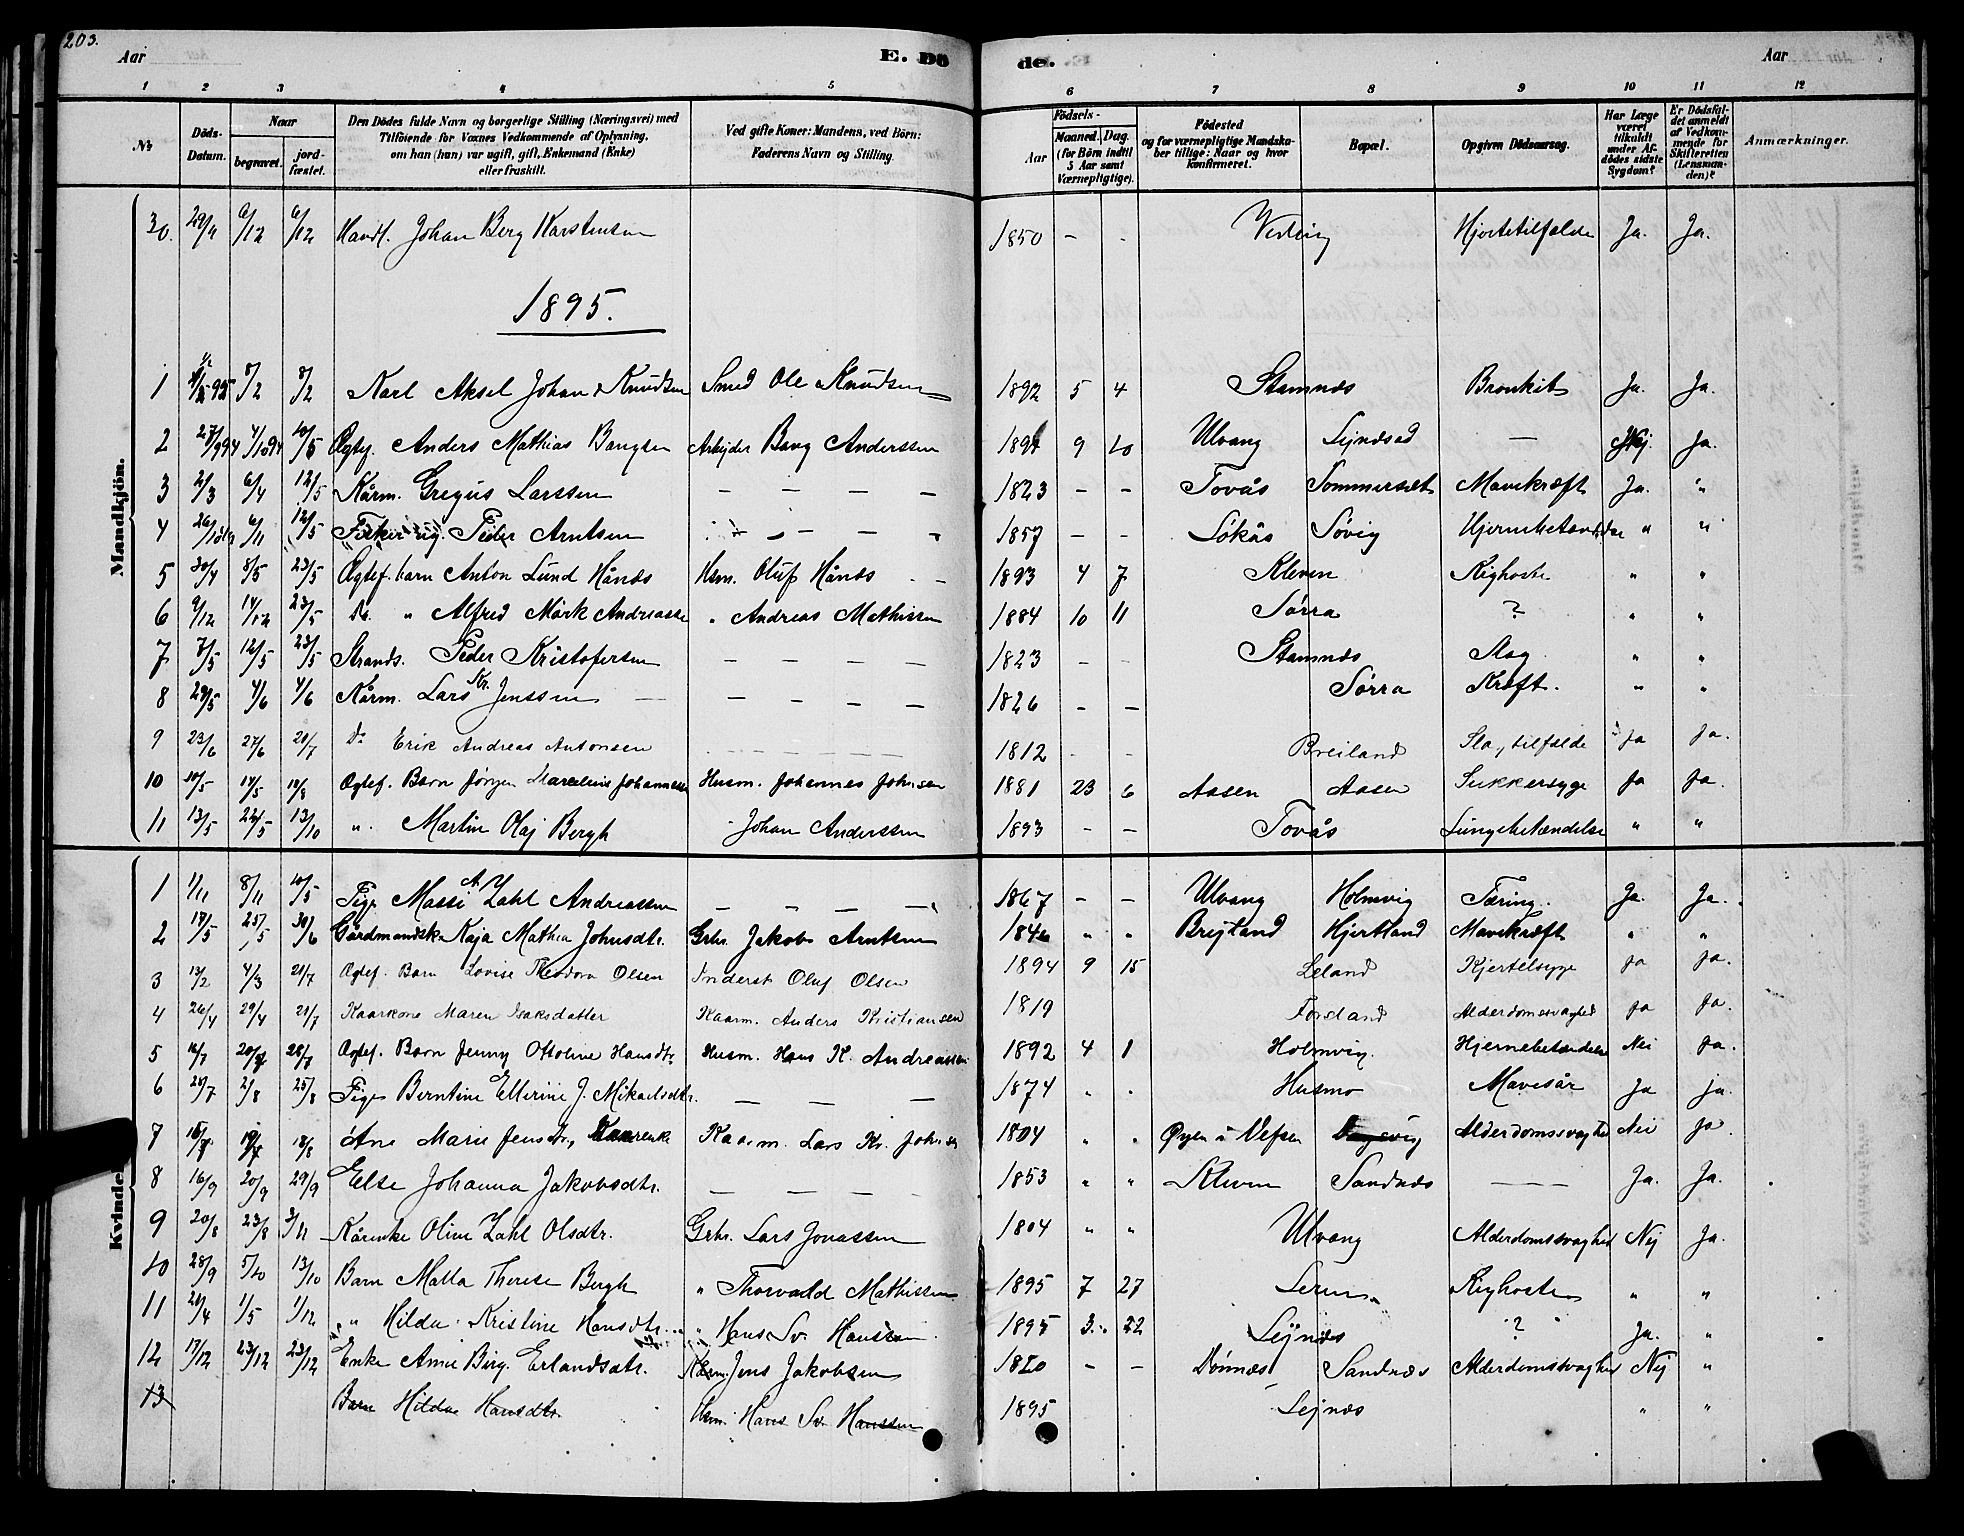 203.
Aar
E. Dö
de.
Aar
1 2 3 4 5 6 7 8 9 10 11 12
No
Döds-Datum.
Naar
begravet.
jord-fæstet.
Den Dödes fulde Navn og borgerlige Stilling (Næringsvei) med
Tilföiende for Voxnes Vedkommende af Oplysning,
om han (hun) var ugift, gift, Enkemand (Enke)
eller fraskilt.
Ved gifte Koner: Mandens, ved Börn:
Faderens Navn og Stilling.
Födsels-
Aar
Maaned. Dag.
(for Börn indtil
5 Aar samt
Værnepligtige).
Födested
og for værnepligtige Mandska-
ber tillige: Naar og hvor
konfirmeret.
Bopæl.
Opgiven Dödsaarsag.
Har Læge
været
tilkaldt
under Af-
dödes sidste
Sygdom?
Er Dödsfal-
det anmeldt
af Vedkom-
mende for
Skifteretten
(Lensman-
den)?
Anmærkninger.
Mandkjön.
30. 29/11 6/12 6/12 Handl. Johan Berg Karstensen 1850 - - Hjertetilfælde Ja. Ja.
1895.
1 8/2 8/2 Karl Aksel Johan Knudsen Smed Ole Knudsen 1892 5 4 Stamnæs Bronkit Ja. Ja.
2 27/9 94 4/10 94 10/5 Ægtef. Anders Mathias Bangsen Arbejder Bang Anderssen 9 20 Ulvang Lejndsad — Nej. Ja.
3 2/3 6/4 12/5 Kårm. Gregus Larssen — — — — 1823 - - Tovås Tommersæt Mavekræft Ja. "
4 6/11 12/5 Fisker ug. Peder Arntsen 1857 - - Løkås Søvig " "
5 30/4 8/5 23/5 Ægtef. barn Anton Lund Hånds Hsm. Oluf Hånds 1893 4 7 Kleven Kighoste " "
6 9/12 14/12 23/5 Do. " Alfred Mörk Andreassen " Andreas Mathissen 1884 10 11 Sørra ? " "
7 7/5 12/5 23/5 Strands. Peder Kristofersen — — — — 1823 - - Stamnæs Slag. " "
8 29/5 4/6 4/6 Kårm. Lars Kr. Jenssen — — — — 1826 - - Sørra Kræft. " "
9 23/6 27/6 21/7 Do Erik Andreas Antonsen 1812 - - Breiland Slagtilfælde Ja Ja.
10 10/5 17/5 18/8 Ægtef. Barn Jørgen Marelius Johannessen Husm. Johannes Johnsen 1881 23 6 Aasen Aasen Sukkersyge Ja Ja.
11 13/5 22/5 13/10 " Martin Olaj Bergh Johan Anderssen 1893 - - Tovås Lungebetændelse " "
Kvinde
1 1/11 8/11 10/5 Pige Massi A. Zahl Andreassen — — — — 1867 - - Ulvang Holmvig Tæring. Ja. Ja.
2 17/5 25/5 30/6 Gårdmandske Kaja Mathea Johnsdtr. Grbr. Jakob Arntsen 1846 " " Brejland Hjertland Mavekræft " "
3 13/2 4/3 21/7 Ægtef. Barn Lovise Theodora Olsen Inderst Oluf Olsen 1894 9 15 Leland Kjertelsyge Ja Ja.
4 26/4 29/4 21/7 Kaarkone Maren Isaksdatter Kaarm. Anders Kristiansen 1819 Forsland Alderdomssvaghed Ja Ja.
5 16/7 28/7 Ægtef. Barn Jenny Ottoline Hansdtr. Husm. Hans K. Andreassen 1892 4 1 Holmvig. Hjernebetændelse Nei Ja.
6 2/8 25/8 Pige Berntine Ellerine J. Mikaelsdtr. — — — 1874 " " Husmo Mavesår Ja ja.
7 18/8 Ane Marie Jensdtr, Kaarenke Kaarm. Lars Kr. Johnsen 1804 " " Øyen i Vefsen Alderdomssvaghed Nei Ja.
8 16/9 20/9 29/9 Else Johanna Jakobsdtr. — — — — 1853 " " Kleven Sandnæs —— Ja. Ja.
9 20/8 23/8 3/11 Kårenke Oline Zahl Olsdtr. Grbr. Lars Jonassen 1804 " " Ulvang Alderdomssvaghed Nej Ja.
10 28/9 5/10 13/10 Barn Malla Therese Bergh " Thorvald Mathissen 1895 7 27 Kighoste " "
11 1/5 1/12 " Hilda Kristine Hansdtr. " Hans Sv. Hanssen 1895 3. 22 Lejnæs ? Ja. "
12 17/12 23/12 23/12 Enke Anne Birg. Erlandsdtr. Kårm. Jens Jakobsen 1820 - - Dønnæs Sandnæs Alderdomssvaghed Nej "
13 Barn Hilda Hansdtr. Hsm. Hans Sv. Hanssen 1895 Lejnæs " "